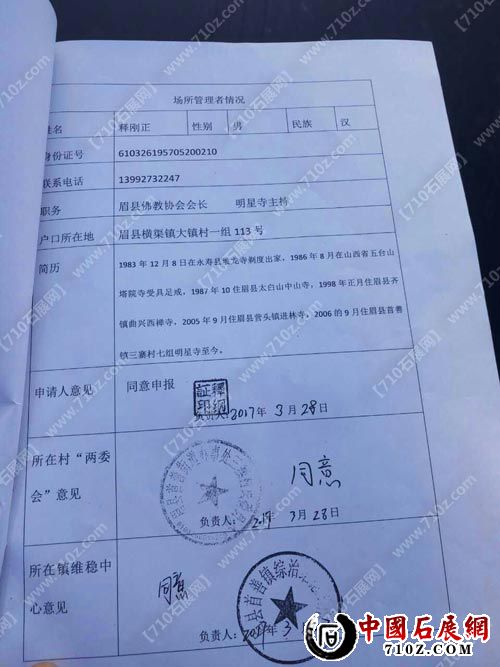 场所管理者情况
姓名 释刚正 性别 男 民族 汉
身份证号 610326195705200210
联系电话 13992732247
职务 眉县佛教协会会长 明星寺主持
户口所在地 眉县横渠镇大镇村一组 113 号
简历 1983 年 12 月 8 日在永寿县龙寺剃度出家,1986 年 8 月在山西省五台山
塔院寺受具足戒,1987 年 10 住眉县太白山中山寺,1998 年正月住眉县齐
镇曲兴西禅寺,2005 年 9 月住眉县营头镇进林寺,2006 的 9 月住眉县首善
镇三寨村七组明星寺至今。
申请人意见 同意申报
负责人:2017年 3月 28日
所在村“两委
会”意见
同意
负责人: 年 3月 28日
所在镇维稳中
心意见
同意
2017年 3
中國石展网
710z.com
【710石展网】
www.710z.com